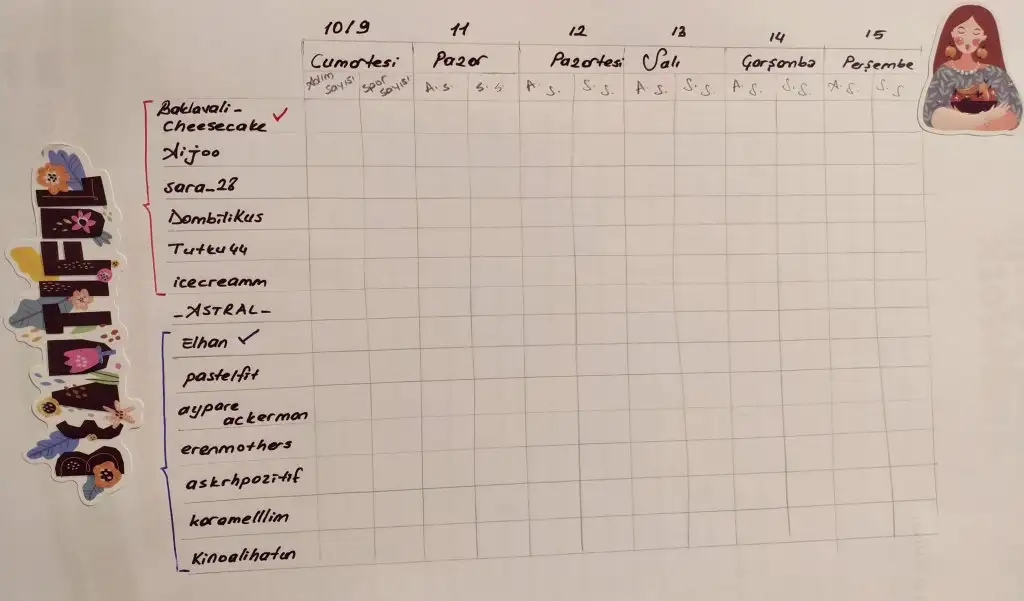 10/9 11 12 13 14 15
Cumartesi Pazar Pazartesi Salı Çarşamba Perşembe
Adım sayısı Spor sayısı A. S. S. S. A. S. S. S. A. S. S. S. A. S. S. S. A. S. S. S.
Baklavali-
Cheesecake
Aijoo
sara_28
Dombilikus
Tutku44
icecreamm
_ASTRAL_
Elhan
pastelfit
aypare
ackerman
erenmothers
askrhpozitif
karamelllim
Kinoalihatun
BEAUTIFUL